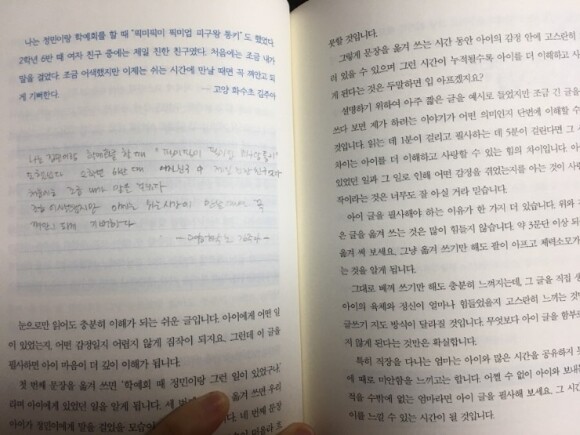 나는 정민이랑 학예회를 할 때 "픽미픽미 픽미업 피구왕 통키"도 했었다.
2학년 6반 때 여자 친구 중에는 제일 친한 친구였다. 처음에는 조금 내가
말을 걸었다. 조금 어색했지만 이제는 쉬는 시간에 만날 때면 꼭 껴안고 되
게 기뻐한다.
— 고양 화수초 김주아
나는 정민이랑 학예회를 할 때
2학년 6반 때 여자친구 중 제일 친한 친구였다
처음에는 조금 내가 말을
조금 어색했지만 이제는 쉬는 시간에 만날 때면 꼭
껴안고 되게 기뻐한다
눈으로만 읽어도 충분히 이해가 되는 쉬운 글입니다. 아이에게 어떤 일
이 있었는지, 어떤 감정일지 어렵지 않게 짐작이 되지요. 그런데 이 글을
필사하면 아이 마음이 더 깊이 이해가 됩니다.
첫 번째 문장을 옮겨 쓰면 '학예회 때 정민이랑 그런 일이 있었구나.'
라며 아이에게 있었던 일을 알게 됩니다. 세 번 옮겨 쓰면 우리
아이가 정민이에게 말을 걸었을 모습이 네 번째 문장
못할 것입니다.
그렇게 문장을 옮겨 쓰는 시간 동안 아이의 감정 안에 고스란히
러 있을 수 있으며 그런 시간이 누적될수록 아이를 더 이해하고 사
게 된다는 것은 두말하면 입 아프겠지요?
설명하기 위하여 아주 짧은 글을 예시로 들었지만 조금 긴 글을
쓰다 보면 제가 하려는 이야기가 어떤 의미인지 단번에 이해할 수
것입니다. 읽는 데 1분이 걸리고 필사하는 데 5분이 걸린다면 그
차이는 아이를 더 이해하고 사랑할 수 있는 힘의 차이입니다. 아
있었던 일과 그 일로 인해 어떤 감정을 겪었는지를 아는 것이 사
작이라는 것은 너무도 잘 아실 거라 믿습니다.
아이 글을 필사해야 하는 이유가 한 가지 더 있습니다. 위와
은 글을 옮겨 쓰는 것은 많이 힘들지 않습니다. 약 3문단 이상 되
옮겨 써 보세요. 그냥 옮겨 쓰기만 해도 팔이 아프고 체력소모가
는 것을 알게 됩니다.
그대로 베껴 쓰기만 해도 충분히 느껴지는데, 그 글을 직접 생
아이의 육체와 정신이 얼마나 힘들었을지 고스란히 느끼는 것
글쓰기 지도 방식이 달라질 것입니다. 무엇보다 아이 글을 함부
지 않게 된다는 것만은 확실합니다.
특히 직장을 다니는 엄마는 아이와 많은 시간을 공유하지
에 때로 미안함을 느끼고는 합니다. 어쩔 수 없이 아이와 보내
적을 수밖에 없는 엄마라면 아이 글을 필사해 보세요. 그 시간
이를 느낄 수 있는 시간이 될 것입니다.